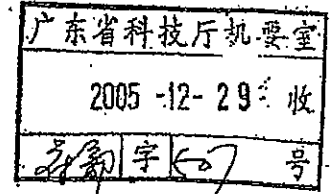 广东省科技厅机要室
2005-12-29 收
字 507 号